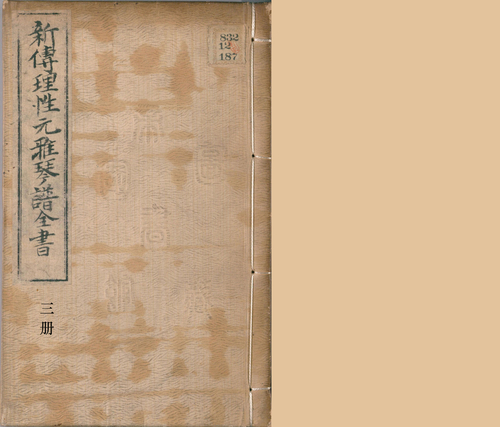 新傳理性元雅琴譜全書
三册
832
12
187